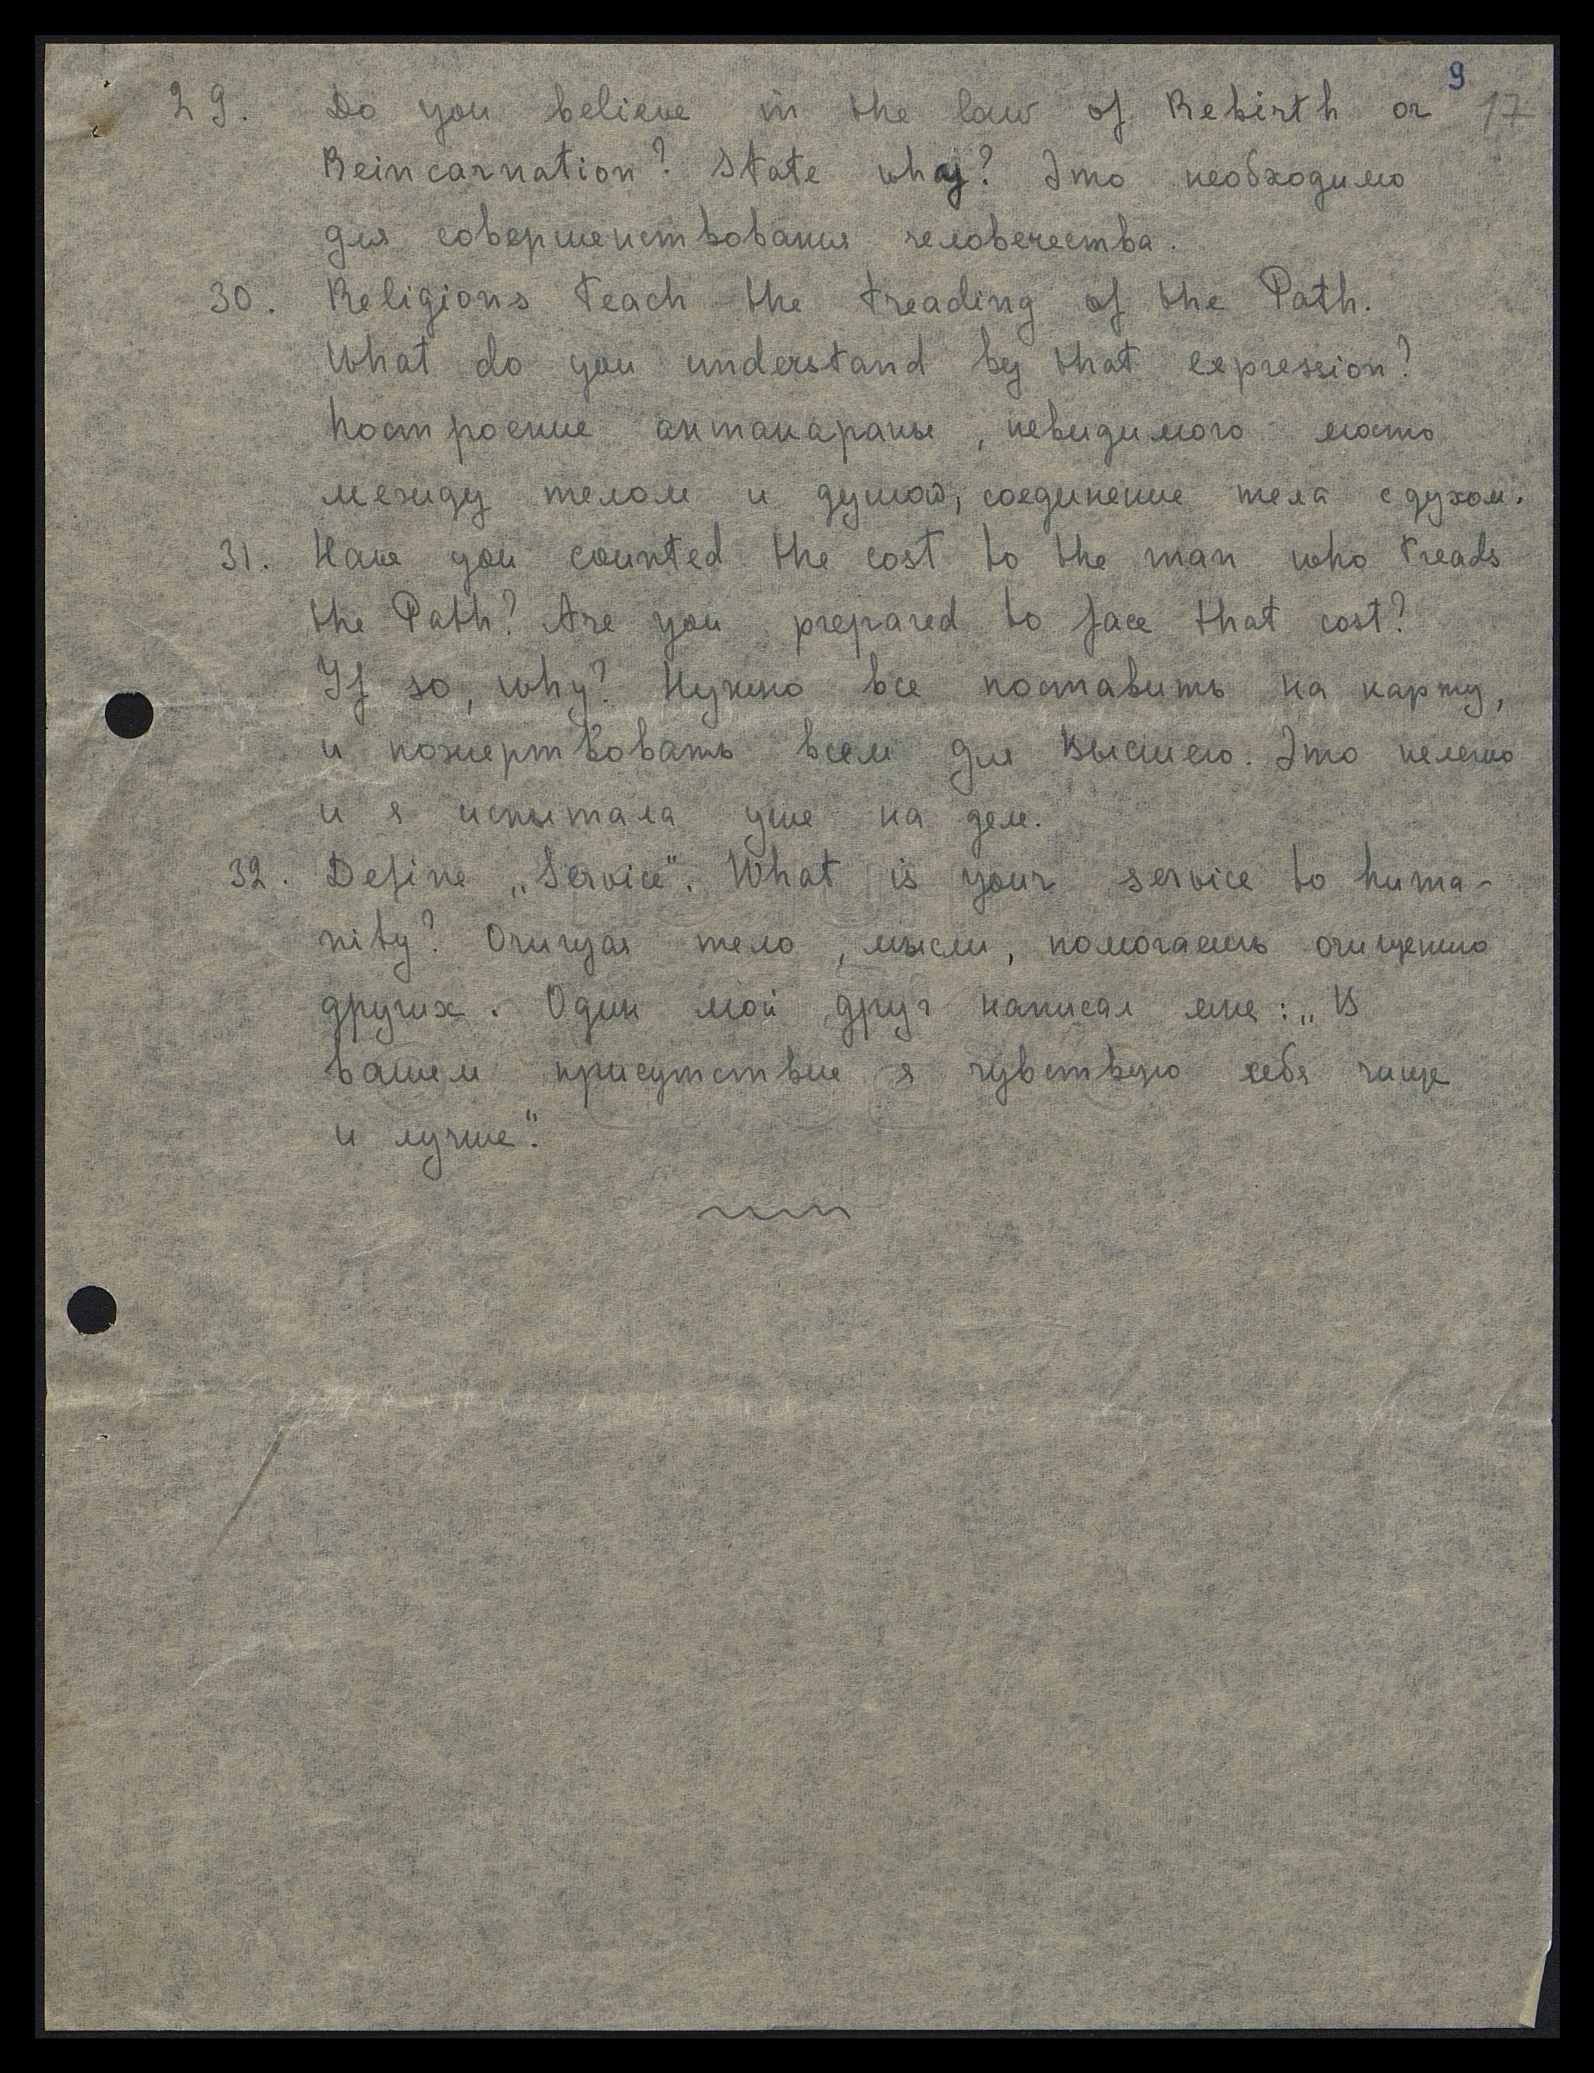 9
29. Do you believe in the law of Rebirth or 17
Reincarnation? State why? Это необходимо
для совершенствования человечества.
30. Religions teach the treading of the Path.
What do you understand by that expression?
Построение антакараны, невидимого моста
между телом и душой, соединение тела с духом.
31. Have you counted the cost to the man who treads
the Path? Are you prepared to face that cost?
If so, why? Нужно все поставить на карту,
и пожертвовать всем для Высшего. Это нелегко
и я испытала уже на деле.
32. Define „Service“. What is your service to huma-
nity? Очищая тело, мысли, помогаешь очищению
других. Один мой друг написал мне: „В
вашем присутствие я чувствую себя чище
и лучше“.